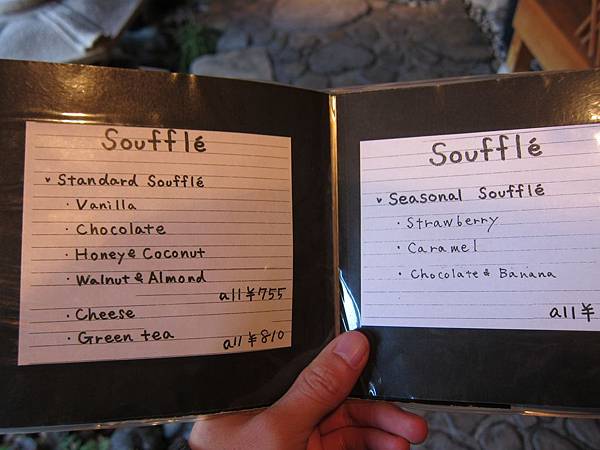 Soufflé
♥ Standard Soufflé
· Vanilla
· Chocolate
· Honey & Coconut
· Walnut & Almond
all ¥755
· Cheese
· Green tea
all ¥810
Soufflé
♥ Seasonal Soufflé
· Strawberry
· Caramel
· Chocolate & Banana
all ¥